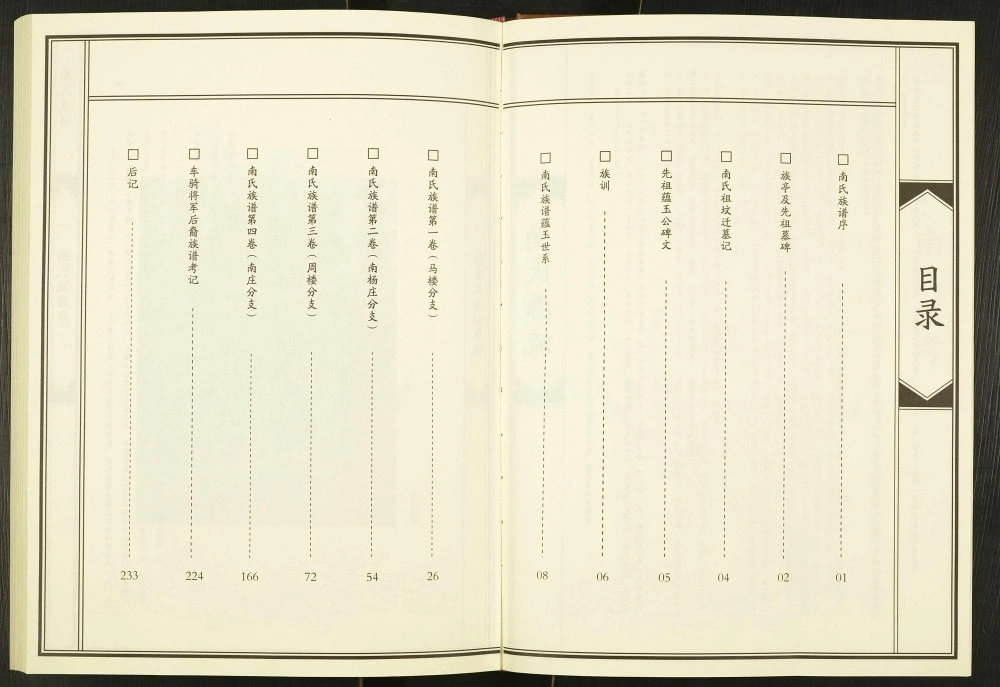 目录
南氏族谱序 01
族亭及先祖墓碑 02
南氏祖坟迁墓记 04
先祖蕴玉公碑文 05
族训 06
南氏族谱蕴玉世系 08
南氏族谱第一卷（马楼分支） 26
南氏族谱第二卷（南杨庄分支） 54
南氏族谱第三卷（周楼分支） 72
南氏族谱第四卷（南庄分支） 166
车骑将军后裔族谱考记 224
后记 233